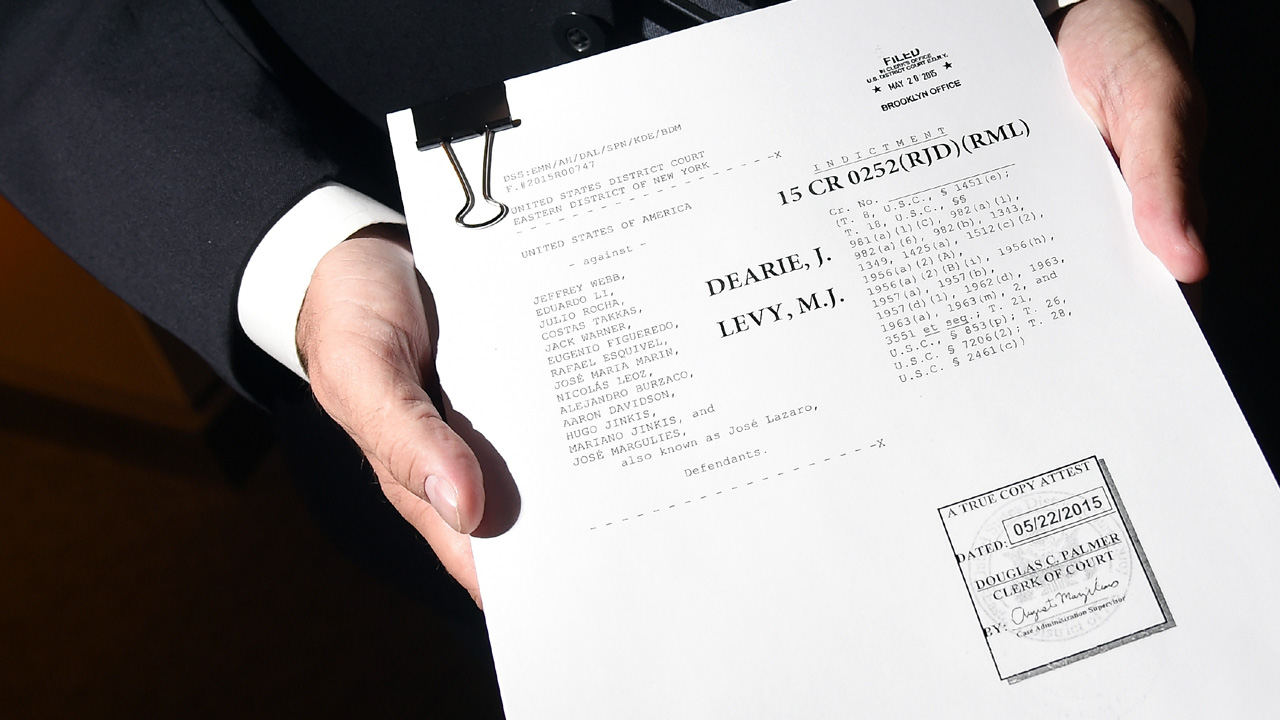 FILED
IN CLERK'S OFFICE
U.S. DISTRICT COURT E.D.N.Y.
★ MAY 20 2015 ★
BROOKLYN OFFICE
DSS:EMN/AH/DAL/SPN/KDE/BDM
F.#2015R00747
UNITED STATES DISTRICT COURT
EASTERN DISTRICT OF NEW YORK
- - - - - - - - - - - - - - - -X
UNITED STATES OF AMERICA
- against -
JEFFREY WEBB,
EDUARDO LI,
JULIO ROCHA,
COSTAS TAKKAS,
JACK WARNER,
EUGENIO FIGUEREDO,
RAFAEL ESQUIVEL,
JOSÉ MARIA MARIN,
NICOLÁS LEOZ,
ALEJANDRO BURZACO,
AARON DAVIDSON,
HUGO JINKIS,
MARIANO JINKIS, and
JOSÉ MARGULIES,
also known as José Lazaro,
Defendants.
- - - - - - - - - - - - - - - -X
INDICTMENT
15 CR 0252(RJD)(RML)
Cr. No.
(T. 8, U.S.C., § 1451(e);
T. 18, U.S.C., §§
981(a)(1)(C), 982(a)(1),
982(a)(6), 982(b), 1343,
1349, 1425(a), 1512(c)(2),
1956(a)(2)(A),
1956(a)(2)(B)(i), 1956(h),
1957(a), 1957(b),
1957(d)(1), 1962(d), 1963,
1963(a), 1963(m), 2, and
3551 et seq.; T. 21,
U.S.C., § 853(p); T. 26,
U.S.C. § 7206(2); T. 28,
U.S.C. § 2461(c))
DEARIE, J.
LEVY, M.J.
A TRUE COPY ATTEST
DATED: 05/22/2015
DOUGLAS C. PALMER
CLERK OF COURT
BY:
Case Administration Supervisor